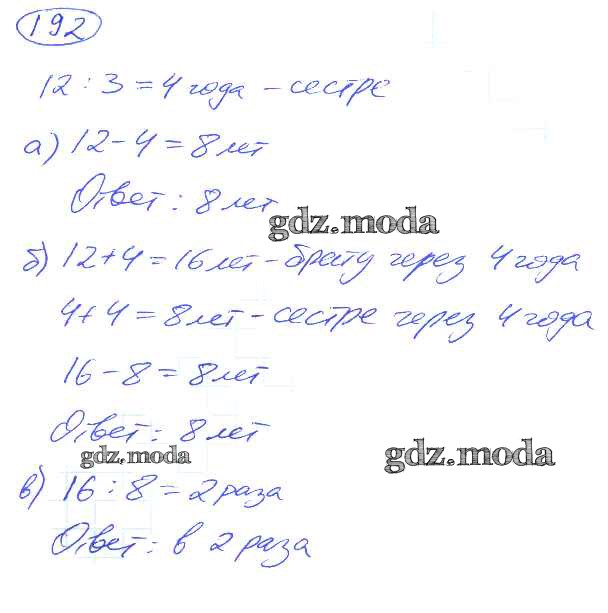 192
12 : 3 = 4 года - сестре
а) 12 - 4 = 8 лет
Ответ : 8 лет
gdz.moda
б) 12 + 4 = 16 лет - брату через 4 года
4 + 4 = 8 лет - сестре через 4 года
16 - 8 = 8 лет
Ответ : 8 лет
gdz.moda
gdz.moda
в) 16 : 8 = 2 раза
Ответ : в 2 раза